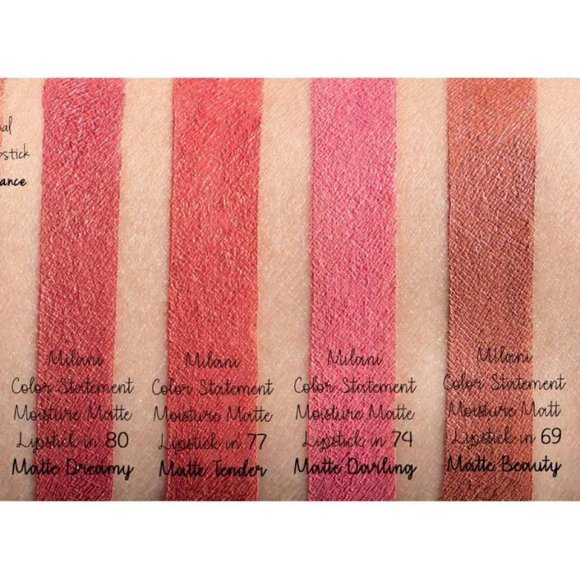 stick
ance
Milani
Color Statement
Moisture Matte
Lipstick in 80
Matte Dreamy
Milani
Color Statement
Moisture Matte
Lipstick in 77
Matte Tender
Milani
Color Statement
Moisture Matte
Lipstick in 74
Matte Darling
Milani
Color Statement
Moisture Matt
Lipstick in 69
Matte Beauty